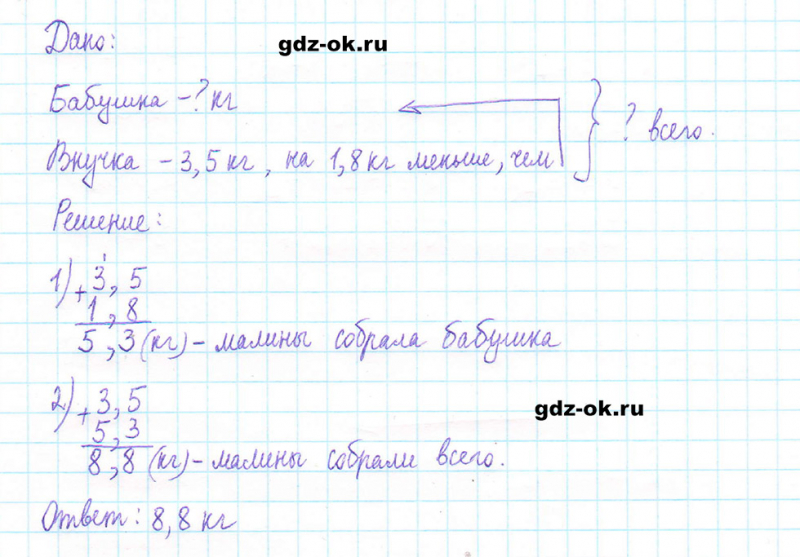 Дано:
gdz-ok.ru
Бабушка – ? кг
? всего.
Внучка – 3,5 кг, на 1,8 кг меньше, чем
Решение:
1) + 3,5
1,8
5,3 (кг) – малины собрала бабушка
2) + 3,5
gdz-ok.ru
5,3
8,8 (кг) – малины собрали всего.
Ответ: 8,8 кг